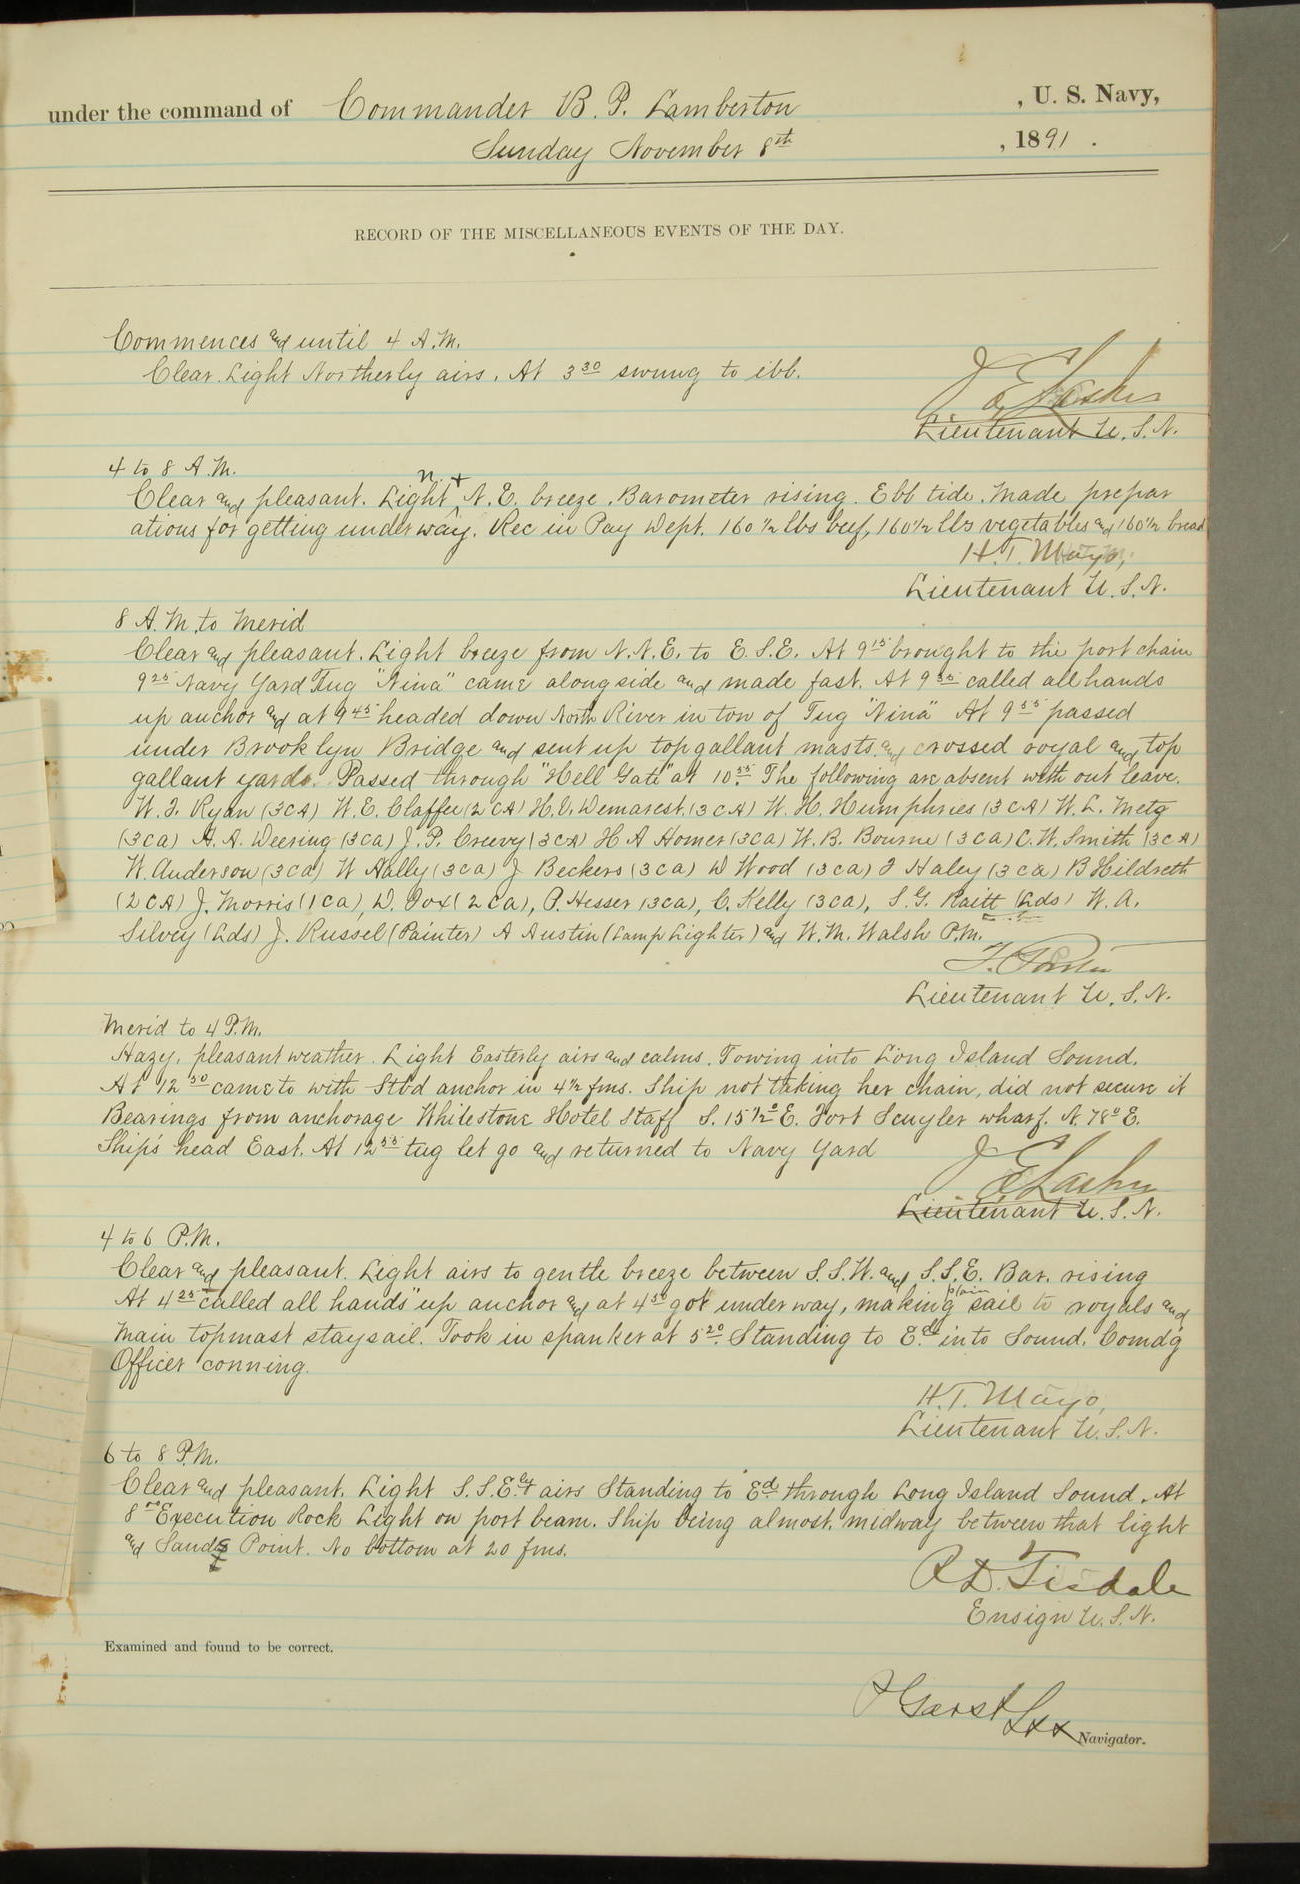 under the command of Commander B. P. Lamberton , U. S. Navy,
Sunday November 8th , 1891 .
RECORD OF THE MISCELLANEOUS EVENTS OF THE DAY.
Commences and until 4 A.M.
Clear. Light Northerly airs. At 3 30 swung to ibb.
Lieutenant U. S. N.
4 to 8 A.M.
Clear and pleasant. Light N. E. breeze. Barometer rising. Ebb tide. Made prepar
ations for getting under way. Rec in Pay Dept. 160 1/2 lbs beef, 160 1/2 lbs vegetables and 160 1/2 bread
H. T. Mayo,
Lieutenant U. S. N.
8 A.M. to Merid
Clear and pleasant. Light breeze from N.N.E. to E.S.E. At 9 15 brought to the port chain
9 25 Navy Yard Tug "Nina" came alongside and made fast. At 9 35 called all hands
up anchor and at 9 45 headed down North River in tow of Tug "Nina" At 9 55 passed
under Brooklyn Bridge and sent up topgallant masts and crossed royal and top
gallant yards. Passed through "Hell Gate" at 10 55. The following are absent with out leave.
W. J. Ryan (3CA) W. E. Claffee (2 CA) H. V. Demarest (3 CA) W. H. Humphries (3 CA) W. L. Metg
(3CA) A. A. Weering (3CA) J. P. Creevy (3CA) H A Homer (3CA) W. B. Bourne (3 CA) C. W. Smith (3CA)
W. Anderson (3CA) W Hally (3CA) J Beckers (3CA) W Wood (3CA) J Haley (3CA) B Hildreth
(2CA) J. Morris (1CA), W. Fox (2CA), P. Hesser (3CA), C. Kelly (3CA), S. G. Raitt (Lds) W. A.
Silvey (Lds) J. Russel (Painter) A Austin (Lamp Lighter) and W. M. Walsh P.M.
Lieutenant U. S. N.
Merid to 4 P.M.
Hazy, pleasant weather. Light Easterly airs and calms. Towing into Long Island Sound.
At 12 50 came to with Stbd anchor in 4 1/2 fms. Ship not taking her chain, did not secure it
Bearings from anchorage Whitestone Hotel Staff S. 15 1/2° E. Fort Scuyler wharf. N. 78° E.
Ship's head East. At 12 55 tug let go and returned to Navy Yard
Lieutenant U. S. N.
4 to 6 P.M.
Clear and pleasant. Light airs to gentle breeze between S.S.W. and S.S.E. Bar. rising
At 4 25 called all hands "up anchor and at 4 50 got under way, making plain sail to royals and
main topmast staysail. Took in spanker at 5 20. Standing to E.d into Sound. Comdg
Officer conning.
H. T. Mayo,
Lieutenant U. S. N.
6 to 8 P.M.
Clear and pleasant. Light S.S.E.ly airs Standing to Ed through Long Island Sound. At
8 Execution Rock Light on port beam. Ship being almost midway between that light
and Sands Point. No bottom at 20 fms.
R. D. Tisdale
Ensign U. S. N.
Examined and found to be correct.
Garst
Navigator.